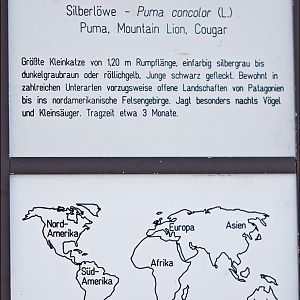 Silberlöwe - Puma concolor (L.)
Puma, Mountain Lion, Cougar
Größte Kleinkatze von 1,20 m Rumpflänge, einfarbig silbergrau bis
dunkelgraubraun oder röllichgelb, Junge schwarz gefleckt. Bewohnt in
zahlreichen Unterarten vorzugsweise offene Landschaften von Patagonien
bis ins nordamerikanische Felsengebirge. Jagt besonders nachts Vögel
und Kleinsäuger. Tragzeit etwa 3 Monate.
Nord-
Amerika
Europa
Asien
Afrika
Süd-
Amerika